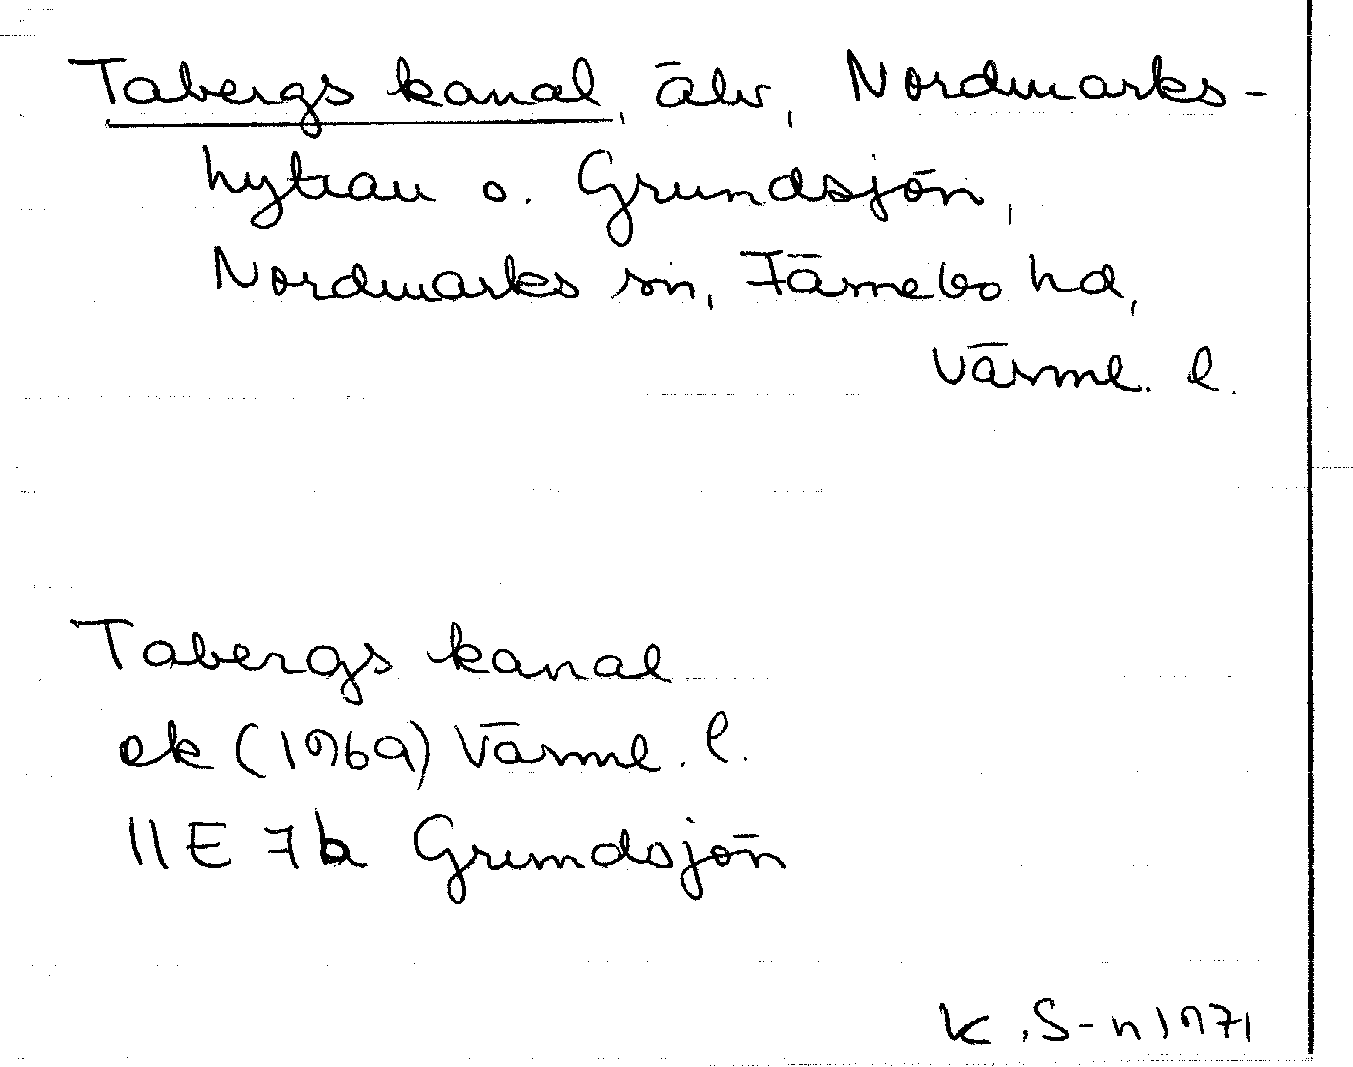 Tabergs kanal, älv, Nordmarks-
hyttan o. Grundsjön,
Nordmarks sn, Färnebo hd,
Värml. l.
Tabergs kanal
ek (1969) Värml. l.
11E 7b Grundsjön
K. S-n 1971